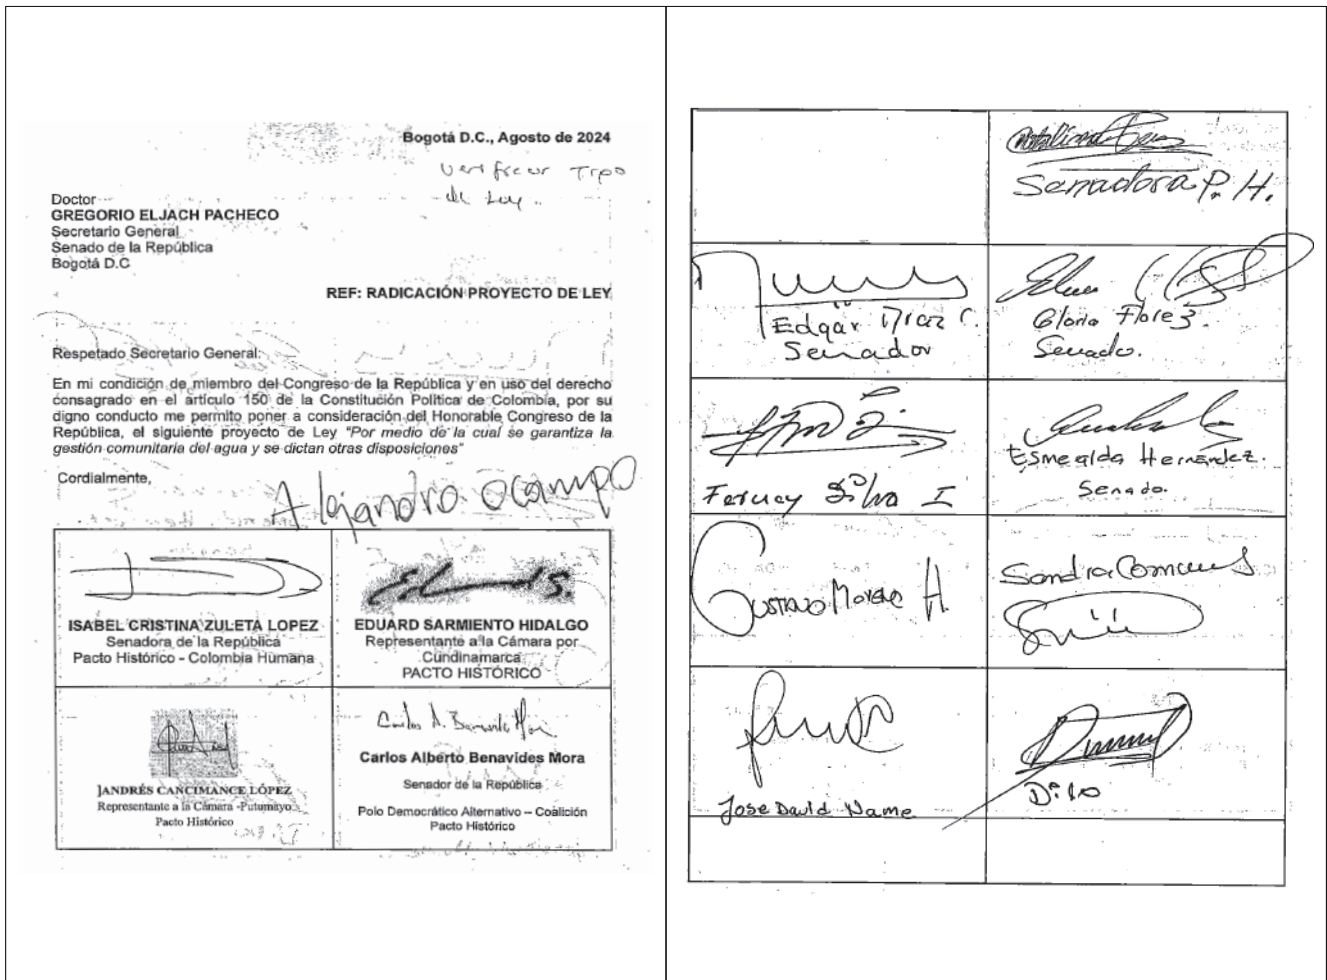 Bogotá D.C., Agosto de 2024
Verificar Tipo
de Ley.
Doctor
GREGORIO ELJACH PACHECO
Secretario General
Senado de la República
Bogotá D.C
REF: RADICACIÓN PROYECTO DE LEY
Respetado Secretario General:
En mi condición de miembro del Congreso de la República y en uso del derecho
consagrado en el artículo 150 de la Constitución Política de Colombia, por su
digno conducto me permito poner a consideración del Honorable Congreso de la
República, el siguiente proyecto de Ley "Por medio de la cual se garantiza la
gestión comunitaria del agua y se dictan otras disposiciones"
Cordialmente,
Alejandro Ocampo
ISABEL CRISTINA ZULETA LOPEZ
Senadora de la República
Pacto Histórico - Colombia Humana
EDUARD SARMIENTO HIDALGO
Representante a la Cámara por
Cundinamarca
PACTO HISTÓRICO
JANDRÉS CANCIMANCE LÓPEZ
Representante a la Cámara -Putumayo
Pacto Histórico
Carlos Alberto Benavides Mora
Senador de la República
Polo Democrático Alternativo – Coalición
Pacto Histórico
Senadora P. H.
Edgar Diaz C.
Senador
Gloria Florez.
Senado.
Ferney Silva I
Esmeralda Hernández.
Senado.
Gustavo Moreno H.
Sandra
Jose David Name